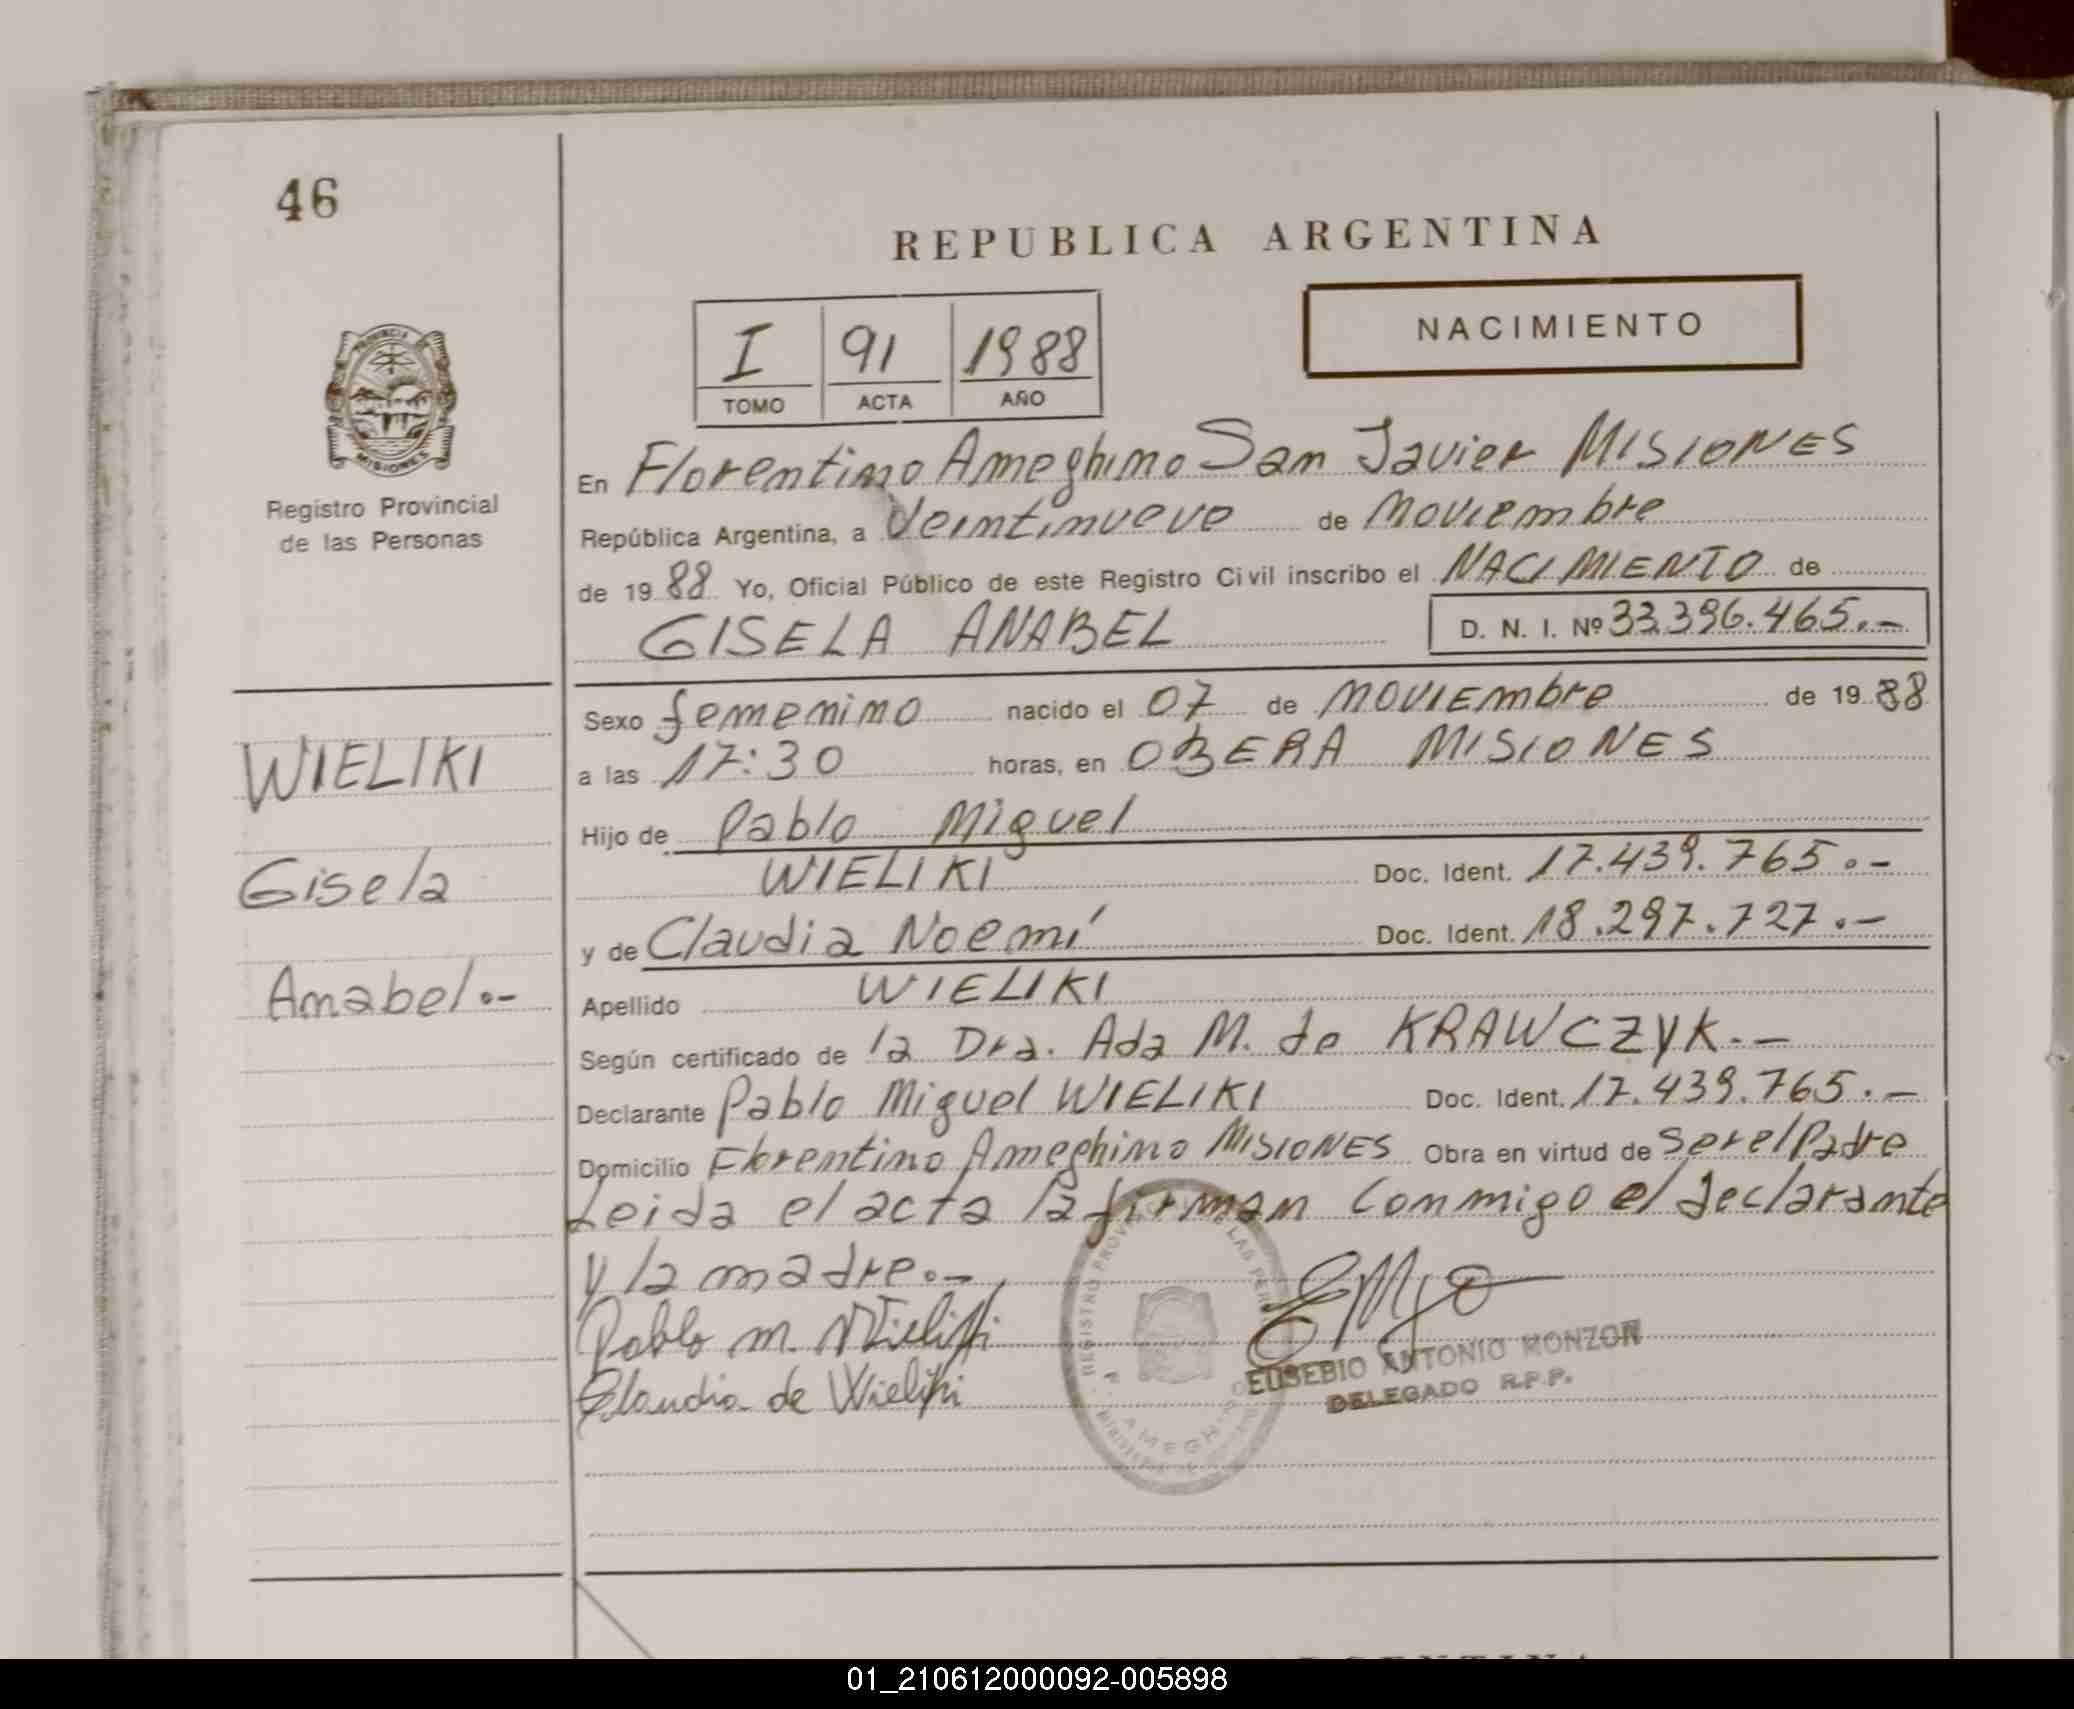 46
REPUBLICA ARGENTINA
I 91 1988
TOMO ACTA AÑO
NACIMIENTO
PROVINCIA
MISIONES
Registro Provincial
de las Personas
En Florentino Ameghino San Javier MISIONES
República Argentina, a Veintinueve de Noviembre
de 1988 Yo, Oficial Público de este Registro Civil inscribo el NACIMIENTO de
GISELA ANABEL D. N. I. Nº 33.396.465.-
WIELIKI
Gisela
Anabel.-
Sexo femenino nacido el 07 de NOVIEmbre de 1988
a las 17:30 horas, en OBERA MISIONES
Hijo de Pablo Miguel
WIELIKI Doc. Ident. 17.439.765.-
y de Claudia Noemí Doc. Ident. 18.297.727.-
Apellido WIELIKI
Según certificado de la Dra. Ada M. de KRAWCZYK.-
Declarante Pablo Miguel WIELIKI Doc. Ident. 17.439.765.-
Domicilio Florentino Ameghino MISIONES Obra en virtud de Ser el Padre
Leida el acta la firman Conmigo el declarante
y la madre.-
Pablo M. Wieliki
Claudia de Wieliki
EUSEBIO ANTONIO MONZON
DELEGADO R.P.P.
01_210612000092-005898